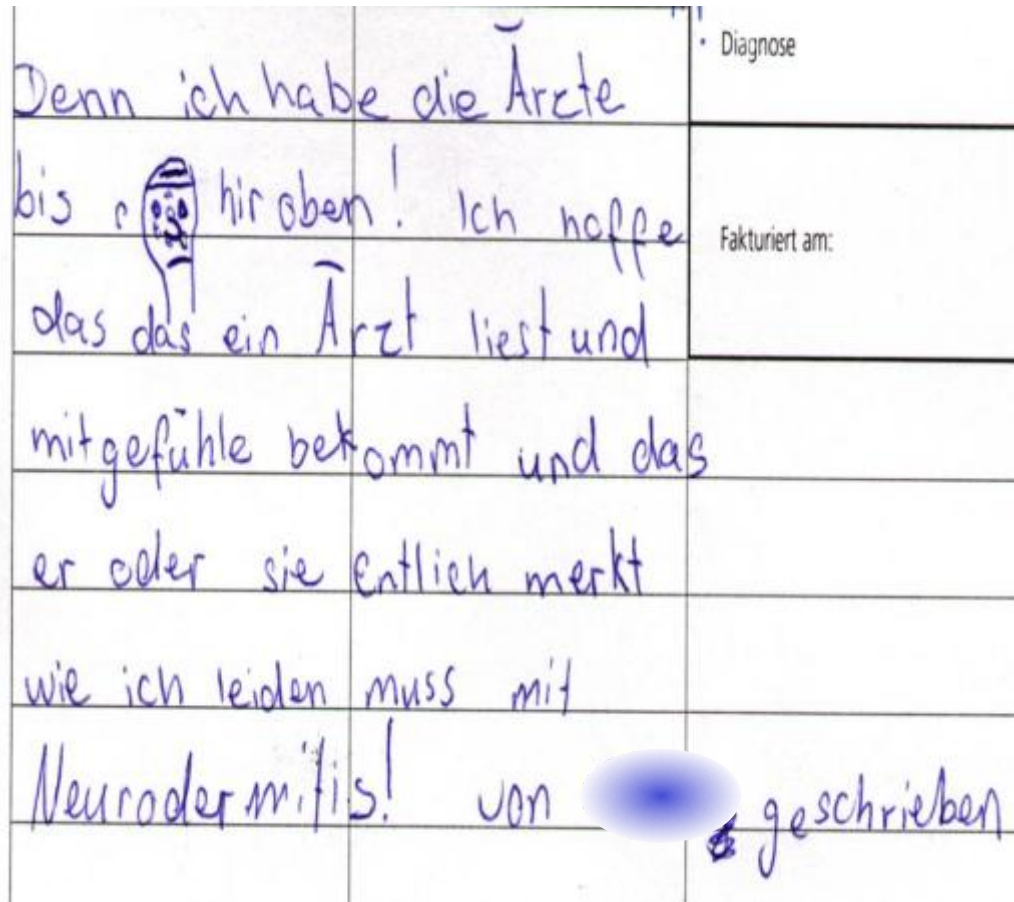 Diagnose
Denn ich habe die Ärzte
bis hir oben! Ich hoffe
Fakturiert am:
das das ein Ärzt liest und
mitgefühle bekommt und das
er oder sie entlich merkt
wie ich leiden muss mit
Neurodermitis! von geschrieben